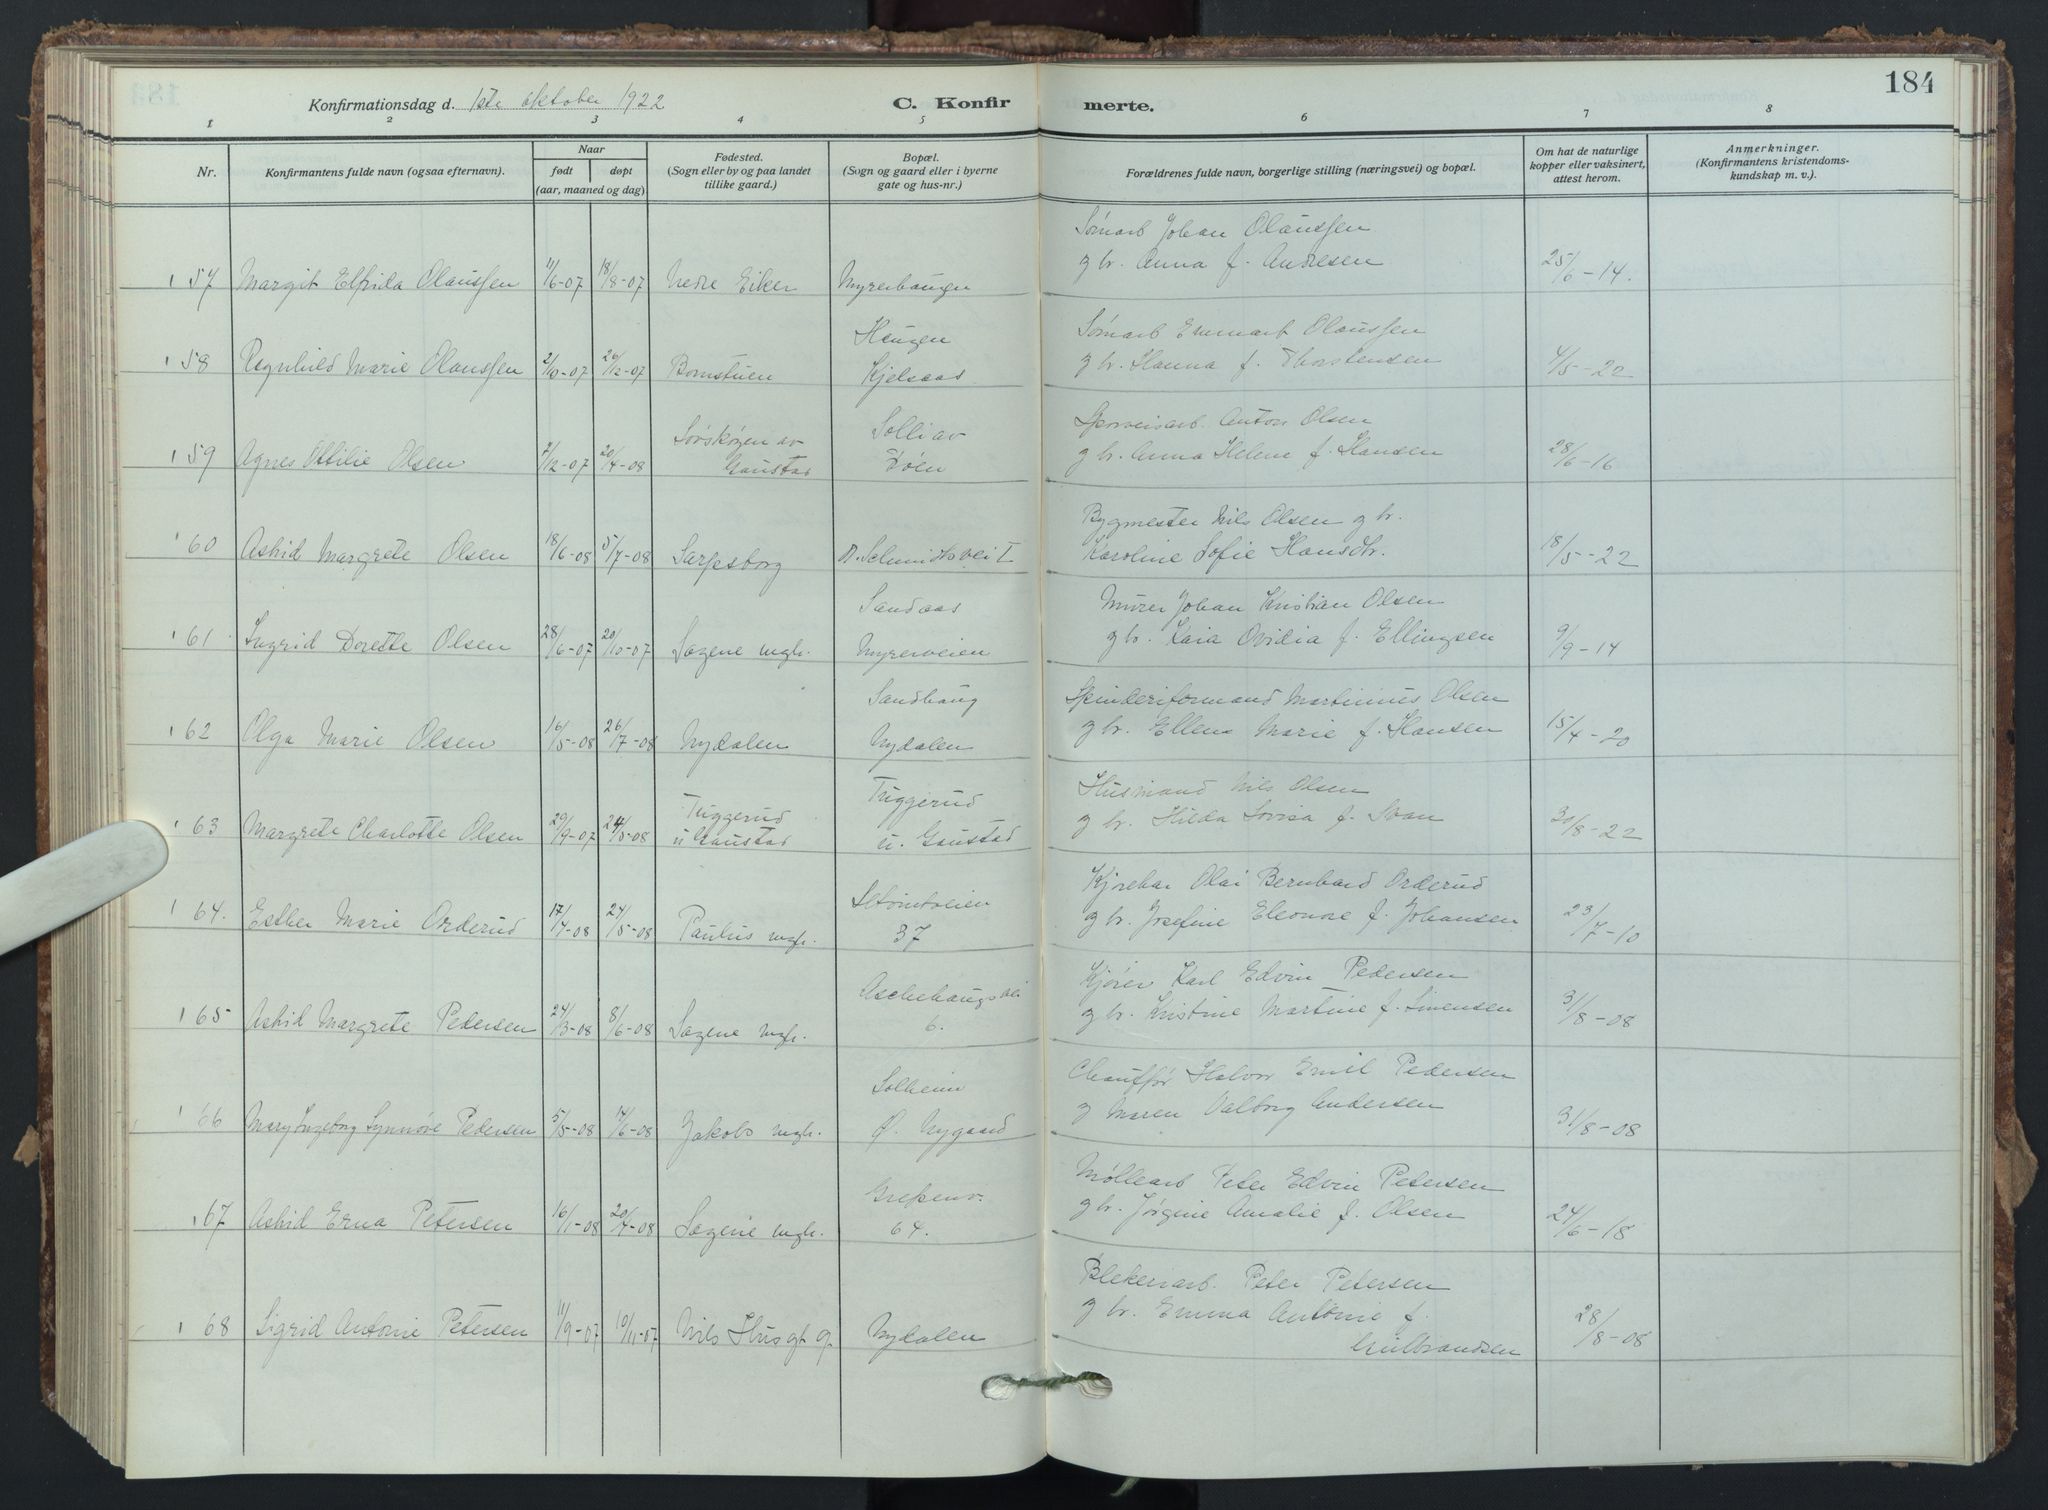 184
Konfirmationsdag d. 1ste oktober 1922
C. Konfirmerte.
1 2 3 4 5 6 7 8
Nr.
Konfirmantens fulde navn (ogsaa efternavn).
Naar
født døpt
(aar, maaned og dag)
Fødested.
(Sogn eller by og paa landet
tillike gaard.)
Bopæl.
(Sogn og gaard eller i byerne
gate og hus-nr.)
Forældrenes fulde navn, borgerlige stilling (næringsvei) og bopæl.
Om hat de naturlige
kopper eller vaksinert,
attest herom.
Anmerkninger.
(Konfirmantens kristendoms-
kundskap m. v.).
Johan Olaussen
57 Margit Elfrida Olaussen 11/6-07 18/8-07 Nedre Eiker Myrerhaugen g hr. Anna f. Andresen 25/6-14.
Haugen Olaussen
58 Ragnhild Marie Olaussen 2/10-07 26/12-07 Bomstuen Kjelsaas g hr. Hanna f. Thorstensen 4/5-22
Sørskogen av Solli av Sporveisarb. Anton Olsen
59 Agnes Ottilie Olsen 7/12-07 20/4-08 Gaustad g hr. Anna Helene f. Hansen 28/6-16
Bygmester Nils Olsen g hr.
60 Astrid Margrete Olsen 18/6-08 5/7-08 Sarpsborg Karoline Sofie Hansdtr. 18/5-22
Sandaas Murer Johan Kristian Olsen
61 Ingrid Dorette Olsen 28/6-07 20/10-07 Sagene mgh. Myrerveien g hr. Kaia Ovidia f. Ellingsen 9/9-14
Sandhaug Spinderiformand Martinius Olsen
62 Olga Marie Olsen 16/5-08 26/7-08 Nydalen Nydalen g hr. Ellena Marie f. Hansen 15/4-20
Tuggerud Tuggerud Husmand Nils Olsen
63 Margrete Charlotte Olsen 29/9-07 u Gaustad u. Gaustad g hr. Hilda Lovisa f. Svan 30/8-22
Kjørekar Olai Bernhard Orderud
64. Esther Marie Orderud 17/4-08 24/5-08 Paulus mgh. 37 g hr. Josefine Eleonore f. Johansen 23/7-10
Aschehougs vei Kjører Karl Edvin Pedersen
65 Astrid Margrete Pedersen 24/3-08 8/6-08 Sagene mgh. 6. g hr. Kristine Martine f. Simensen 31/8-08
Solheim Chauffør Halvor Emil Pedersen
66 Mary Ingeborg Synnøve Pedersen 5/5-08 14/6-08 Jakobs mgh. Ø. Nygaard g Maren Valborg Andersen 31/8-08
Grefsenv. Møllearb Peter Edvin Petersen
67 Astrid Erna Petersen 16/1-08 20/4-08 Sagene mgh. 64. g hr. Jørgine Amalie f. Olsen 24/6-18
Blekeriarb. Peter Petersen
68 Sigrid Antonie Petersen 11/9-07 10/11-07 Nydalen g hr. Emma Antonie f. 28/8-08
Gulbrandsen